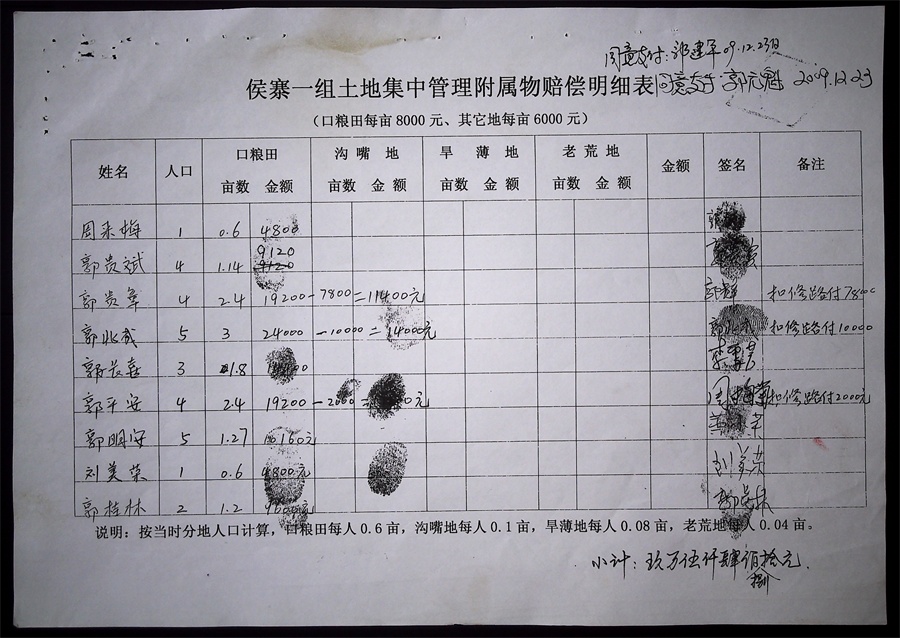 同意支付:郭建军 09.12.23日
侯寨一组土地集中管理附属物赔偿明细表 同意支付 郭元魁 2009.12.23
（口粮田每亩8000元、其它地每亩6000元）
姓名 人口 口粮田 沟嘴地 旱薄地 老荒地 金额 签名 备注
亩数 金额 亩数 金额 亩数 金额 亩数 金额
周采梅 1 0.6 4800
9120
郭贵斌 4 1.14 9120
郭贵 4 2.4 19200-7800=11400元 扣修路付7800
郭兆武 5 3 24000-10000=14000元 郭兆武 扣修路付10000
郭长春 3 1.8
郭平安 4 2.4 19200-2000= 元 扣修路付2000元
郭明安 5 1.27 10160元
刘美荣 1 0.6 4800元 刘美荣
郭桂林 2 1.2 9600元 郭桂林
说明：按当时分地人口计算，口粮田每人0.6亩，沟嘴地每人0.1亩，旱薄地每人0.08亩，老荒地每人0.04亩。
小计:玖万伍仟肆佰拾元.
捌